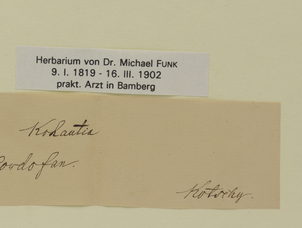 Herbarium von Dr. Michael FUNK
9. I. 1819 - 16. III. 1902
prakt. Arzt in Bamberg
Kohautia
Kordofan.
Kotschy.